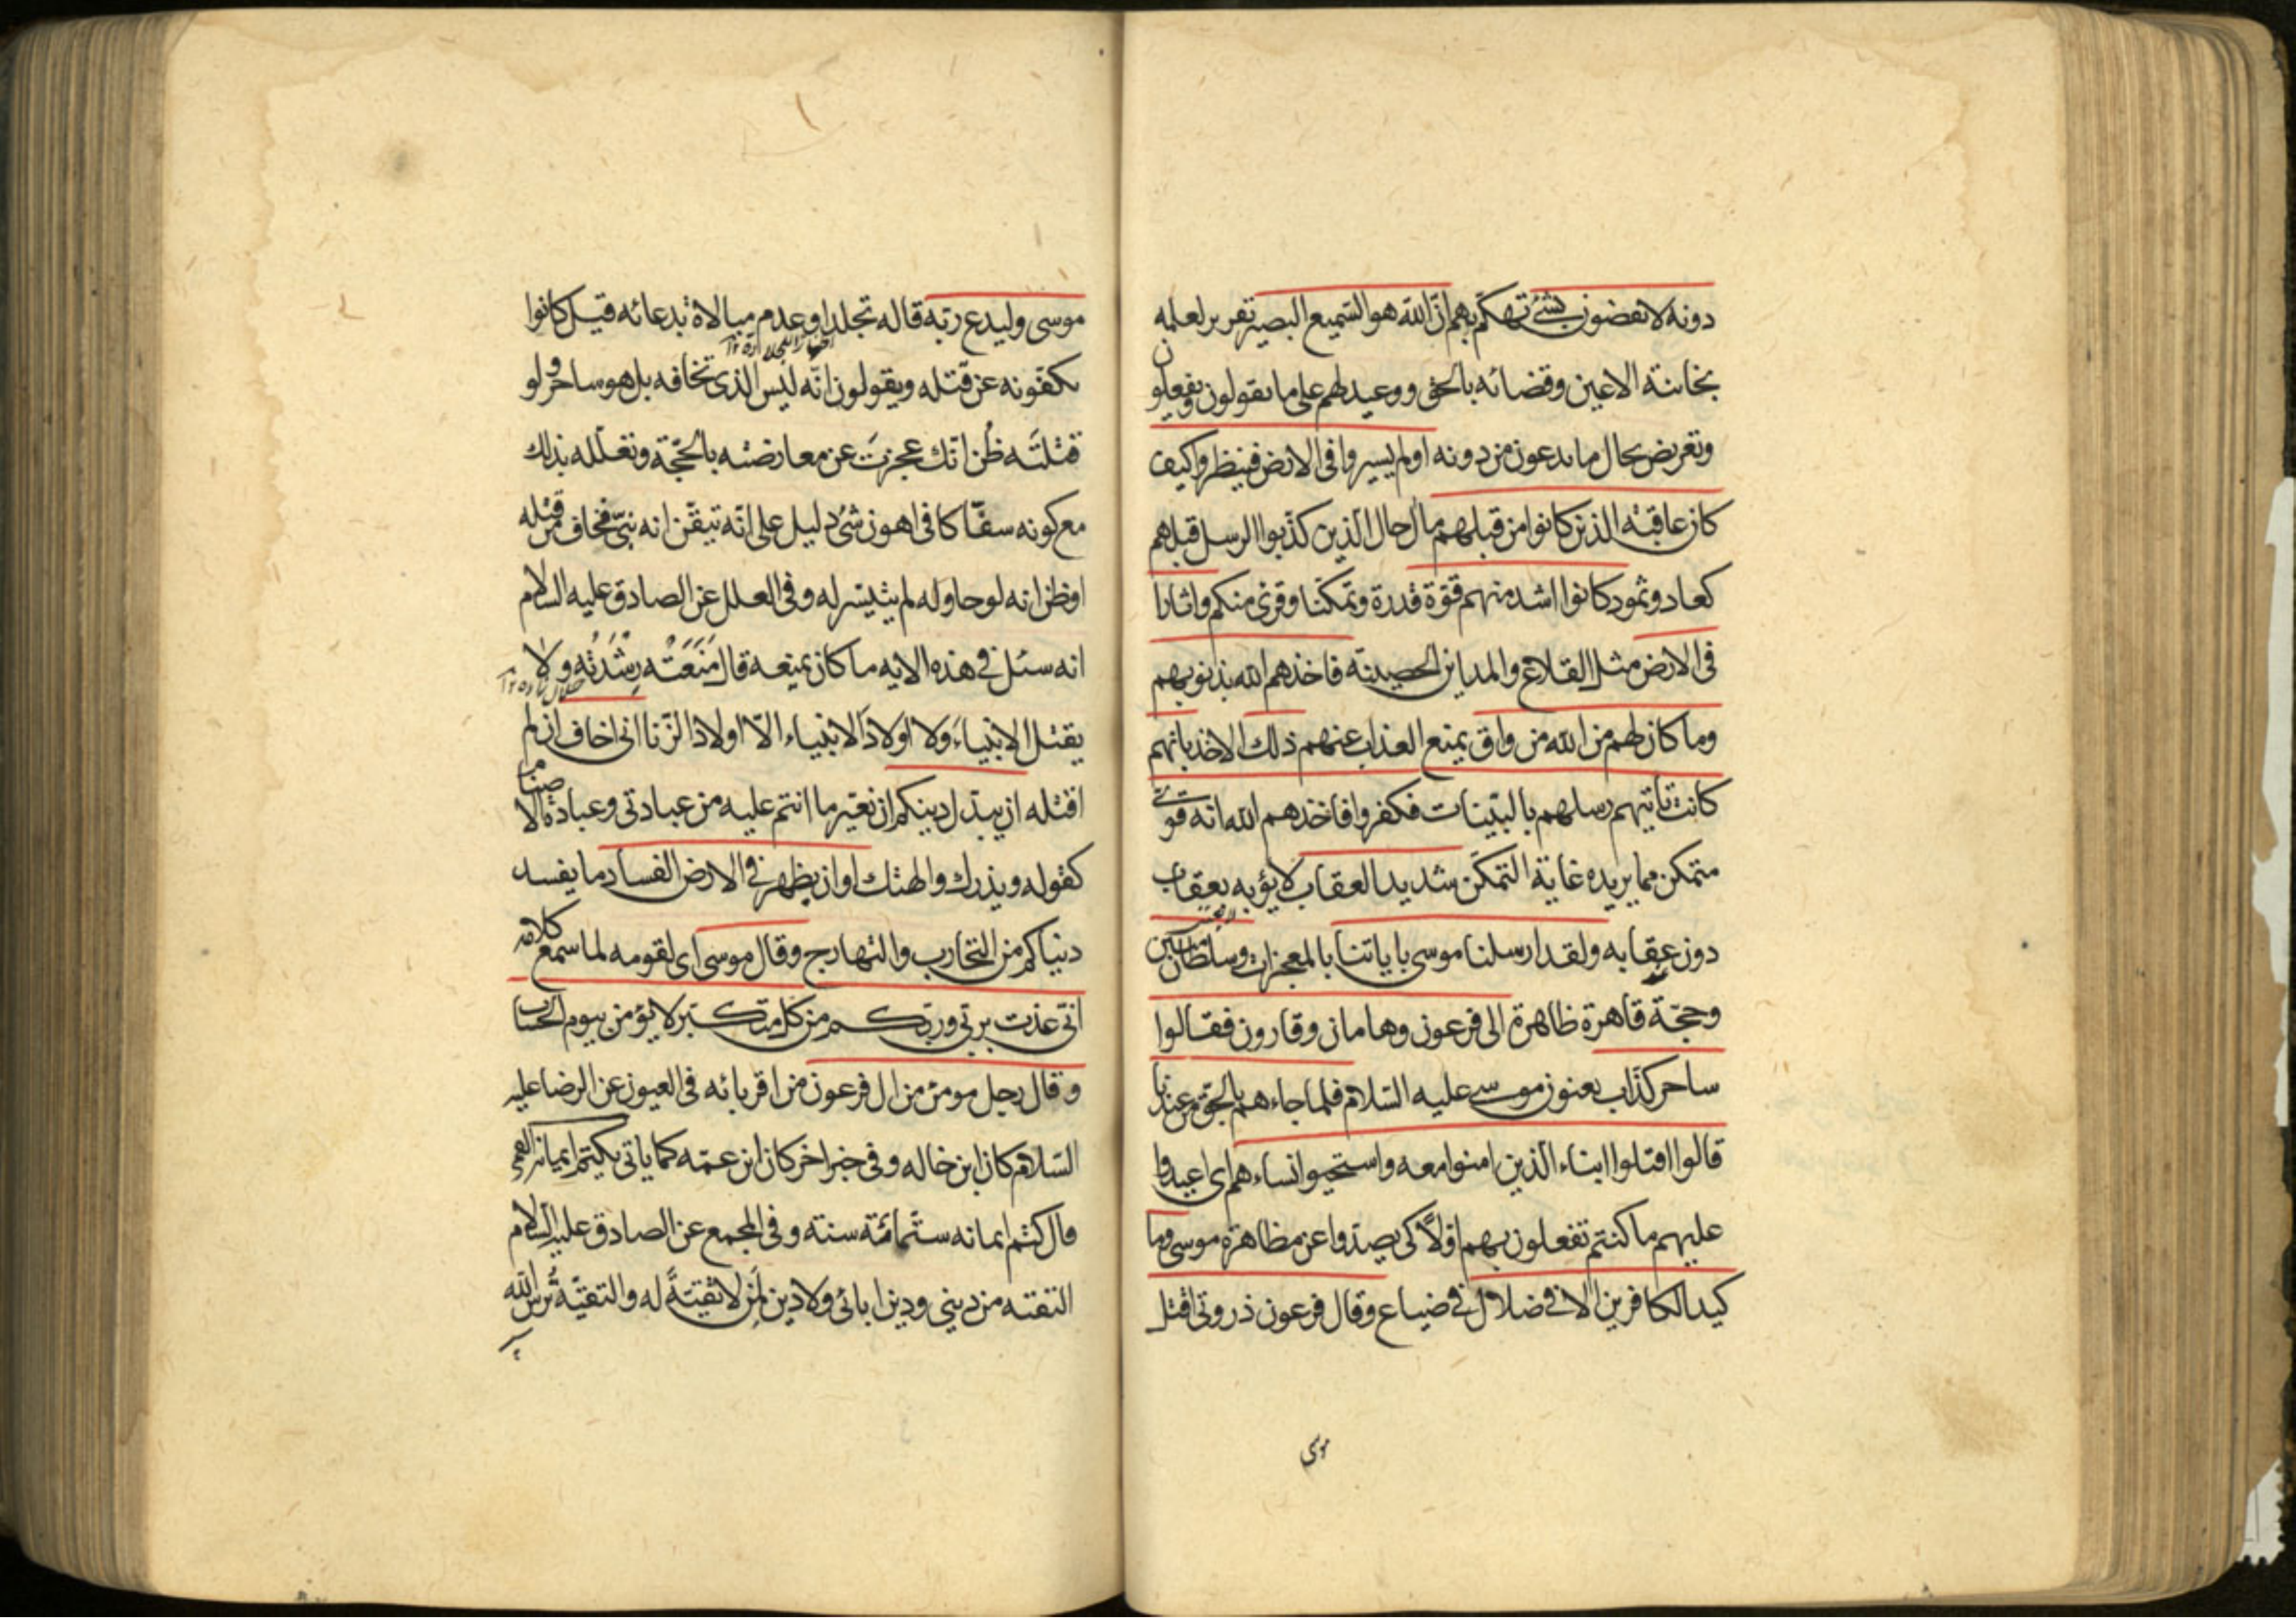 دونه لا يقضون بشئ تهكم بهم ان الله هو السميع البصير تقرير لعلمه
بخائنة الاعين وقضائه بالحق ووعيد لهم على ما يقولون ويفعلون
وتعريض بحال ما يدعون من دونه اولم يسيروا فى الارض فينظروا كيف
كان عاقبة الذين كانوا من قبلهم مآل حال الذين كذبوا الرسل قبلهم
كعاد وثمود كانوا اشد منهم قوة قدرة وتمكنا وقرئ منكم واثارا
فى الارض مثل القلاع والمداين الحصينة فاخذهم الله بذنوبهم
وما كان لهم من الله من واق يمنع العذاب عنهم ذلك الاخذ بانهم
كانت تاتيهم رسلهم بالبينات فكفروا فاخذهم الله انه قوى
متمكن مما يريده غاية التمكن شديد العقاب لا يؤبه بعقاب
دون عقابه ولقد ارسلنا موسى باياتنا بالمعجزات وسلطان مبين
وحجة قاهرة ظاهرة الى فرعون وهامان وقارون فقالوا
ساحر كذاب يعنون موسى عليه السلام فلما جاءهم بالحق من عندنا
قالوا اقتلوا ابناء الذين امنوا معه واستحيوا نساءهم اى اعيدوا
عليهم ما كنتم تفعلون بهم اولا كى يصدوا عن مظاهرة موسى وما
كيد الكافرين الا فى ضلال فى ضياع وقال فرعون ذرونى اقتل
موسى
موسى وليدع ربه قاله تجلدا وعدم مبالاة بدعائه قيل كانوا
يكفونه عن قتله ويقولون انه ليس الذى تخافه بل هو ساحر ولو
قتلته ظن انك عجزت عن معارضته بالحجة وتعلله بذلك
مع كونه سفاكا فى اهون شئ دليل على انه تيقن انه نبى فخاف من قتله
او ظن انه لو حاوله لم يتيسر له وفى العلل عن الصادق عليه السلام
انه سئل فى هذه الايه ما كان يمنعه قال منعته رشدته ولا
يقتل الانبياء ولا اولاد الانبياء الا اولاد الزنا انى اخاف ان لم
اقتله ان يبدل دينكم ان يغير ما انتم عليه من عبادتى وعبادة الاصنام
كقوله ويذرك والهتك او ان يظهر فى الارض الفساد ما يفسد
دنياكم من التحارب والتهارج وقال موسى اى لقومه لما سمع كلامه
انى عذت بربى وربكم من كل متكبر لا يؤمن بيوم الحساب
وقال رجل مومن من ال فرعون من اقربائه فى العيون عن الرضا عليه
السلام كان ابن خاله وفى خبر اخر كان ابن عمه كما ياتى يكتم ايمانه القمى
قال كتم ايمانه ستمائة سنة وفى المجمع عن الصادق عليه السلام
التقيه من دينى ودين ابائى ولا دين لمن لا تقية له والتقية ترس الله